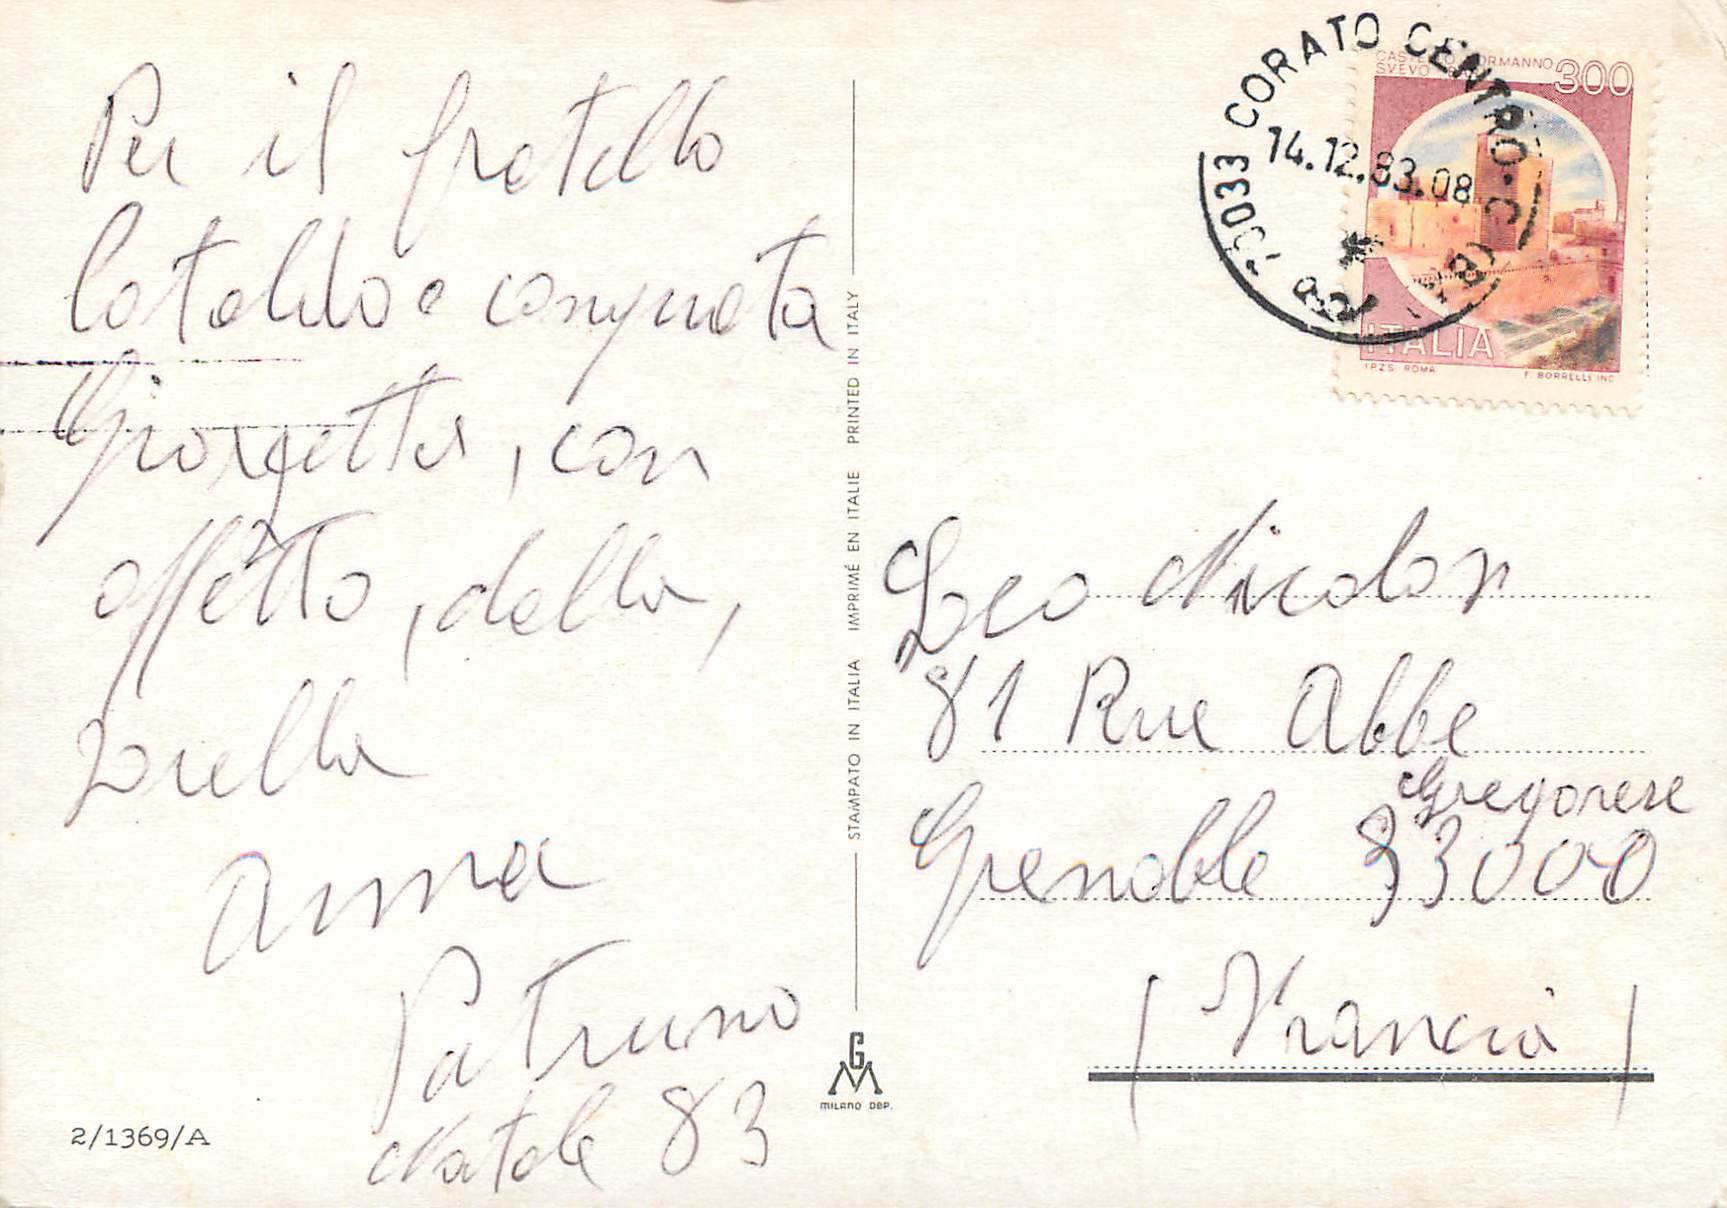 Per il fratello
Cataldo e cognata
Giorgetta, con
affetto, dalla,
Zia
Anna
Patruno
Natale 83
2/1369/A
STAMPATO IN ITALIA IMPRIMÉ EN ITALIE PRINTED IN ITALY
GM
MILANO DEP.
70033 CORATO CENTRO
14.12.83.08
CASTELLO NORMANNO
SVEVO
300
ITALIA
I.P.Z.S. ROMA F. BORRELLI INC.
Leo Nicolas
81 Rue Abbe
Gregorese
Grenoble 33000
(Francia)